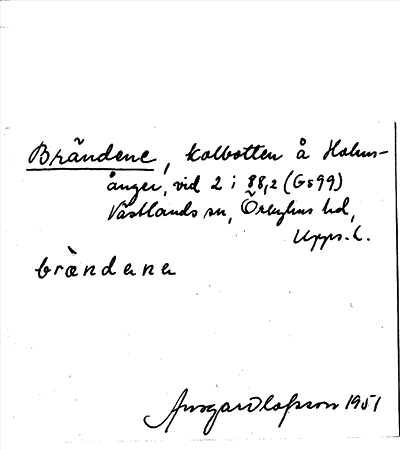 Brändene, kolbotten å Holms-
ånger, vid 2 i 88,2 (Gs99)
Västlands sn, Örbyhus hd,
Upps. l.
brändena
Ansgar Olofsson 1951